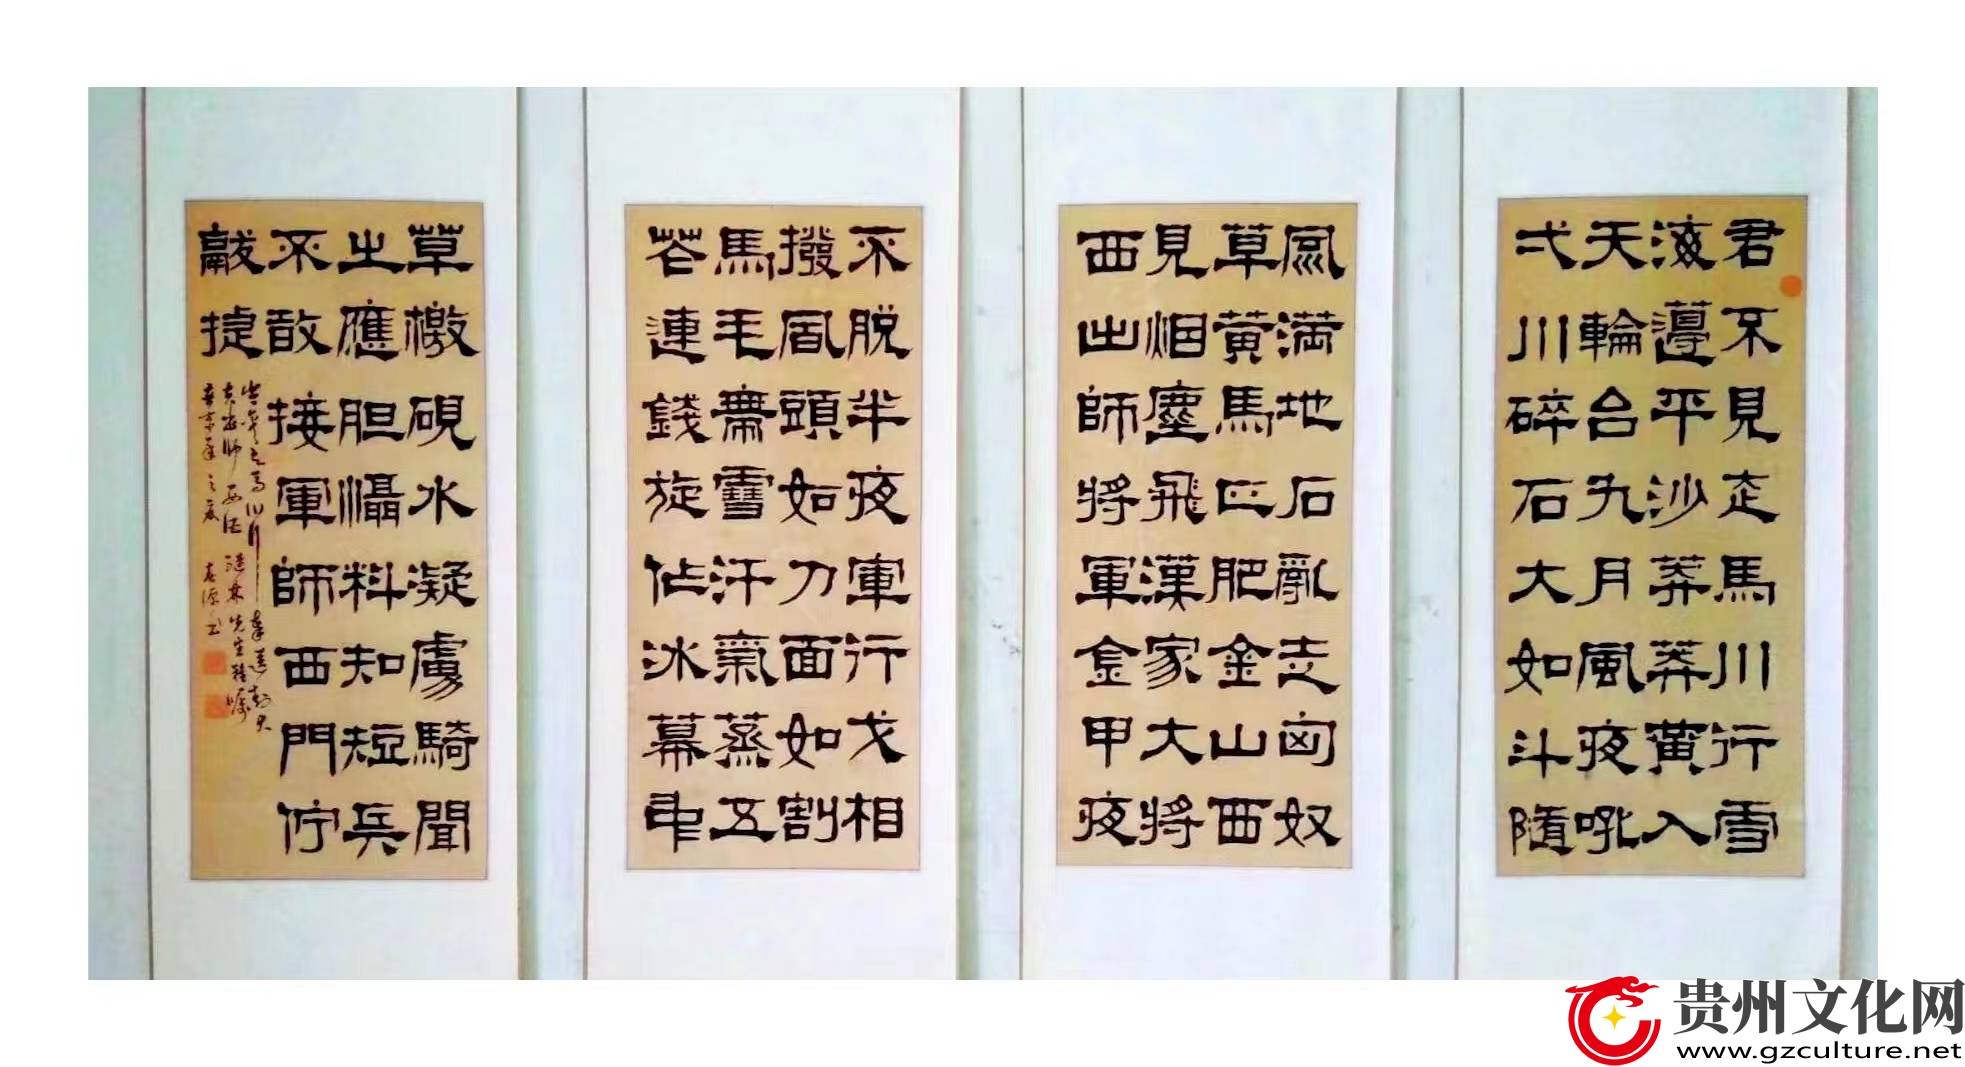 君不見走馬川行雪
海邊平沙莽莽黃入
天輪台九月風夜吼
弌川碎石大如斗隨
風滿地石亂走匈奴
草黃馬正肥金山西
見烟塵飛漢家大將
西出師將軍金甲夜
不脫半夜軍行戈相
撥風頭如刀面如割
馬毛帶雪汗氣蒸五
花連錢旋作冰幕中
草檄硯水凝虜騎聞
之應胆懾料知短兵
不敢接軍師西門佇
獻捷
馬川行奉送封大
夫出師西征 林先生雅囑
年之夏 源书
贵州文化网
www.gzculture.net